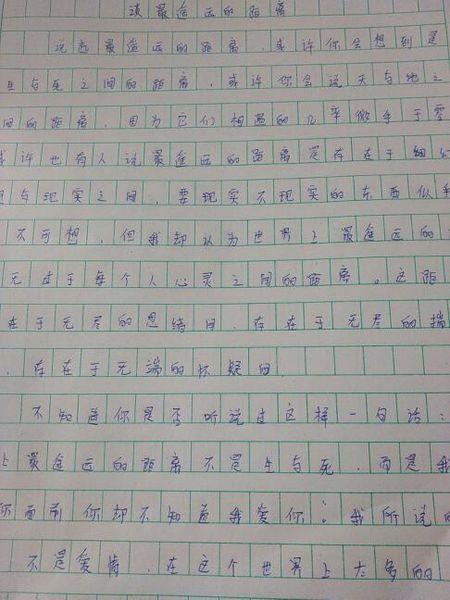 谈最遥远的距离
说起最遥远的距离，或许你会想到是
生与死之间的距离，或许你会说天与地之
间的距离，因为它们相遇的几率微乎于零
或许也有人说最遥远的距离是存在于
与现实之间，要现实不现实的东西似乎
不可想，但我却认为世界上最遥远的
无过于每个人心灵之间的距离。这距
在于无尽的思绪间，存在于无尽的揣
，存在于无端的怀疑间。
不知道你是否听说过这样一句话：
上最遥远的距离不是生与死，而是我
你面前你却不知道我爱你。我所说的
不是爱情，在这个世界上太多的